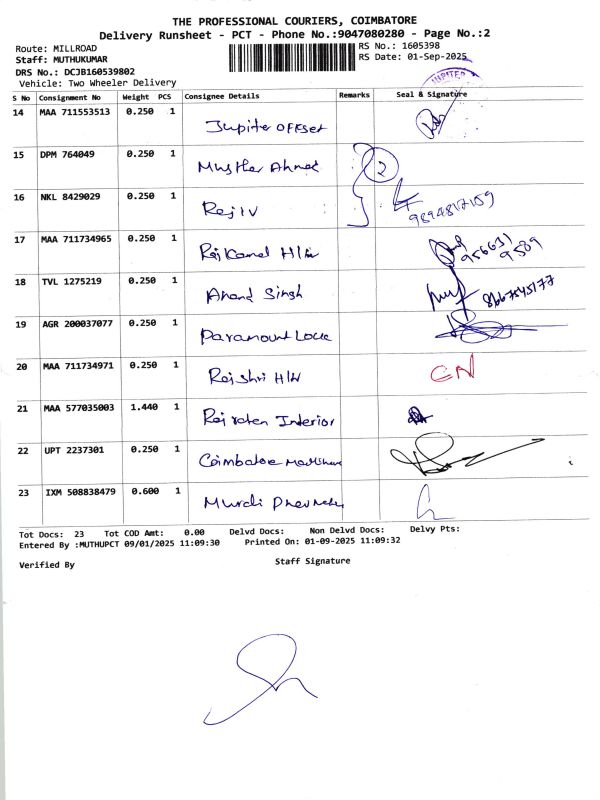 THE PROFESSIONAL COURIERS, COIMBATORE
Delivery Runsheet - PCT - Phone No.:9047080280 - Page No.:2
Route: MILLROAD RS No.: 1605398
Staff: MUTHUKUMAR RS Date: 01-Sep-2025
DRS No.: DCJB160539802
Vehicle: Two Wheeler Delivery
S No Consignment No Weight PCS Consignee Details Remarks Seal & Signature
14 MAA 711553513 0.250 1 Jupite OFFset
15 DPM 764049 0.250 1 Ahmed 2
16 NKL 8429029 0.250 1 Rajiv
17 MAA 711734965 0.250 1 Rajkamal H/W
18 TVL 1275219 0.250 1 Anand Singh 8667545177
19 AGR 200037077 0.250 1 Paramount
20 MAA 711734971 0.250 1 Rajshri H/W CN
21 MAA 577035003 1.440 1 Interior
22 UPT 2237301 0.250 1
23 IXM 508838479 0.600 1
Tot Docs: 23 Tot COD Amt: 0.00 Delvd Docs: Non Delvd Docs: Delvy Pts:
Entered By :MUTHUPCT 09/01/2025 11:09:30 Printed On: 01-09-2025 11:09:32
Verified By Staff Signature